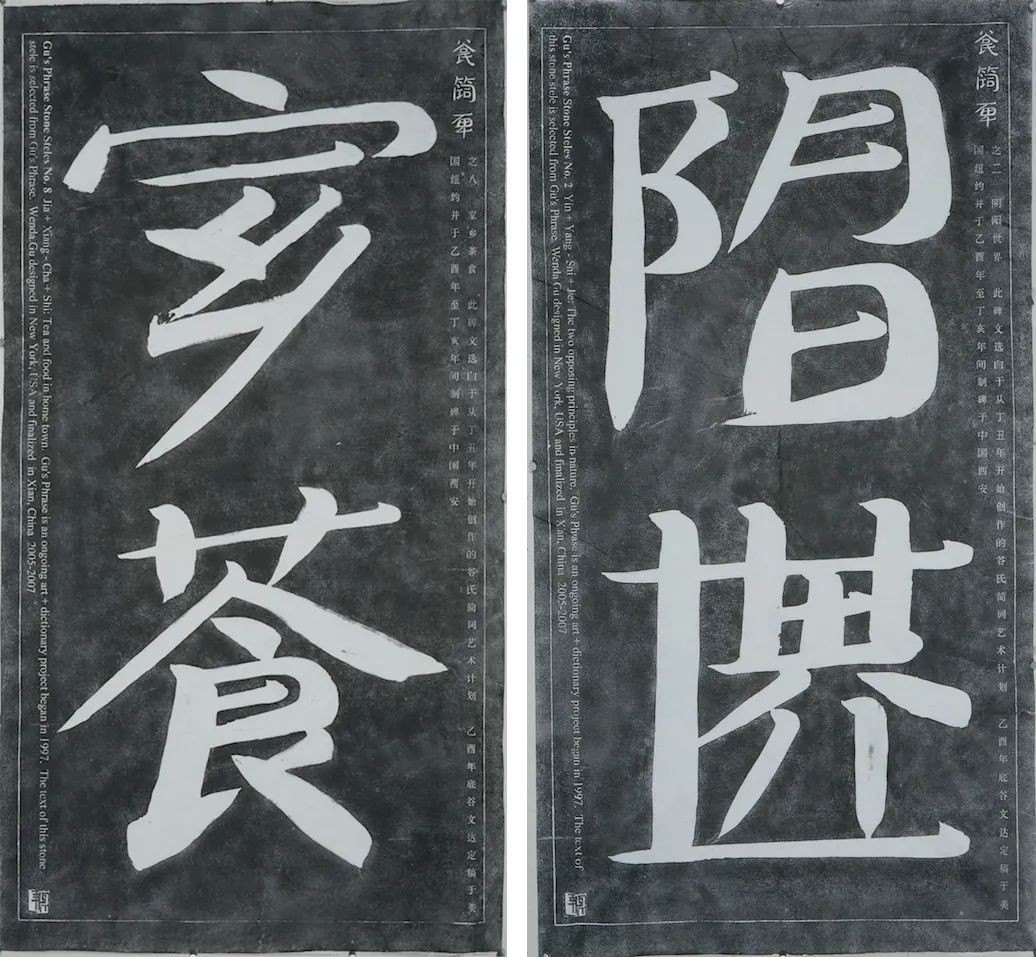 之八 家乡茶食 此碑文选自于从丁丑年开始创作的谷氏简词艺术计划 乙酉年底谷文达定稿于美
国纽约并于乙酉年至丁亥年间制碑于中国西安
Gu's Phrase Stone Steles No. 8 Jia + Xiang - Cha + Shi: Tea and food in home town. Gu's Phrase is an ongoing art + dictionary project began in 1997. The text of this stone
stele is selected from Gu's Phrase. Wenda Gu designed in New York, USA and finalized in Xian, China 2005-2007
之二 阴阳世界 此碑文选自于从丁丑年开始创作的谷氏简词艺术计划 乙酉年底谷文达定稿于美
国纽约并于乙酉年至丁亥年间制碑于中国西安
Gu's Phrase Stone Steles No. 2 Yin + Yang - Shi + Jie: The two opposing principles in nature. Gu's Phrase is an ongoing art + dictionary project began in 1997. The text of
this stone stele is selected from Gu's Phrase. Wenda Gu designed in New York, USA and finalized in Xian, China 2005-2007